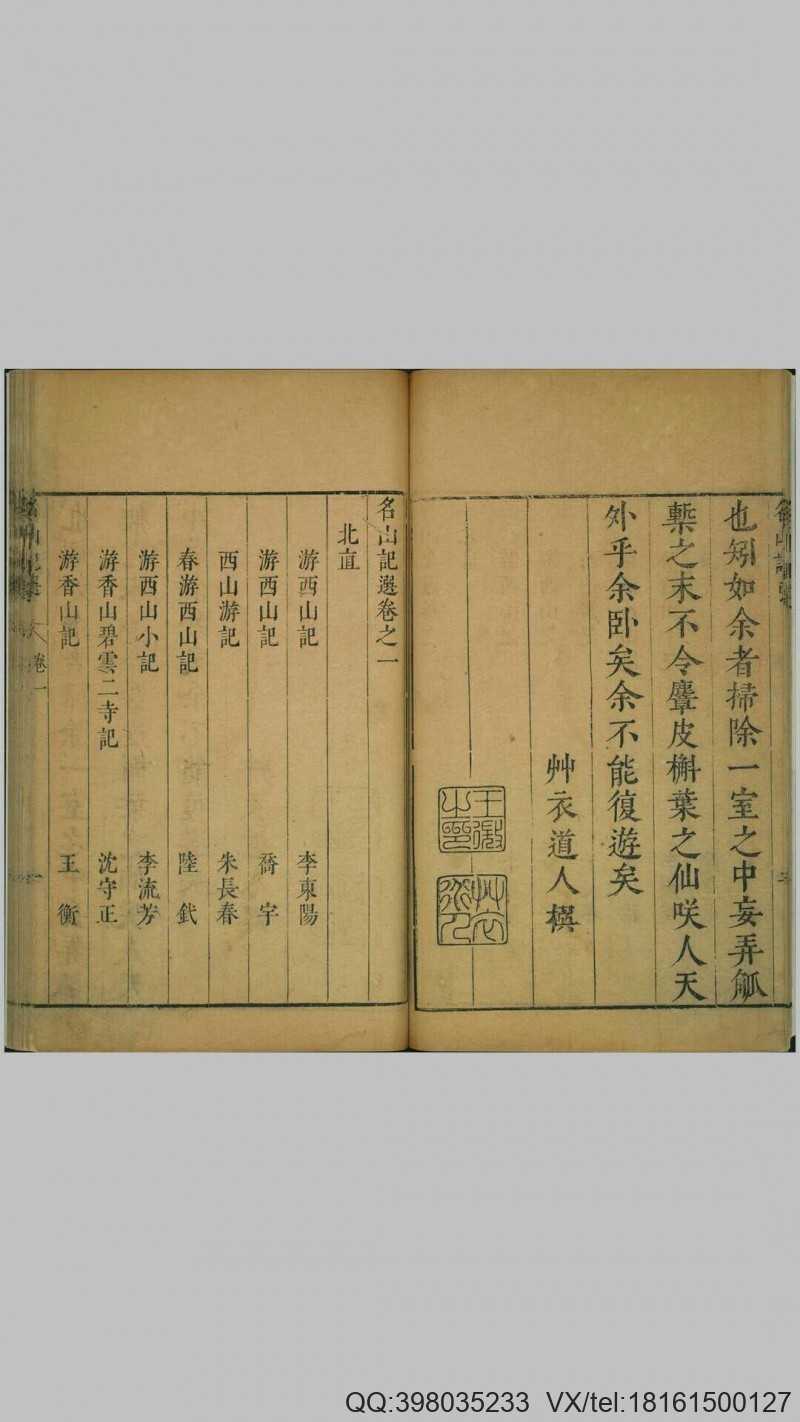 也矧如余者掃除一室之中妄弄觚
槧之末不令麞皮槲葉之仙咲人天
外乎余臥矣余不能復遊矣
艸衣道人撰
王微之印
艸衣道人
名山記選卷之一
北直
游西山記 李東陽
游西山記 喬宇
西山游記 朱長春
春游西山記 陸釴
游西山小記 李流芳
游香山碧雲二寺記 沈守正
游香山記 王衡
卷一
QQ:398035233 VX/tel:18161500127